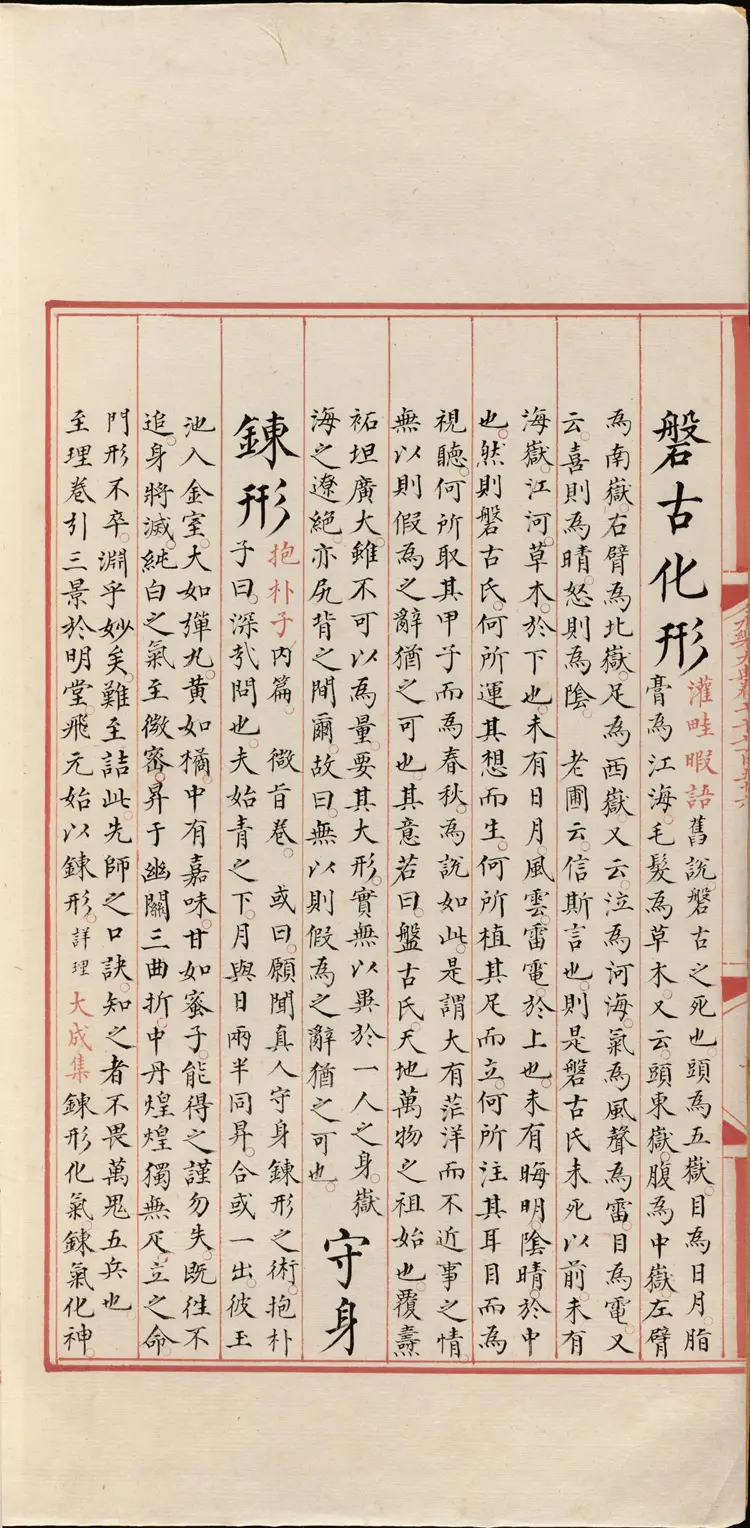 磐古化形
灌畦暇語舊說。磐古之死也。頭為五嶽。目為日月。脂
膏為江海。毛髮為草木。又云。頭東嶽。腹為中嶽。左臂
為南嶽。右臂為北嶽。足為西嶽。又云。泣為河海。氣為風。聲為雷。目為電。又
云。喜則為晴。怒則為陰。 老圃云。信斯言也。則是磐古氏未死以前。未有
海嶽。江河。草木。於下也。未有日月。風雲。雷電。於上也。未有晦明。陰晴。於中
也。然則磐古氏。何所運其想而生。何所植其足而立。何所注其耳目而為
視聽。何所取其甲子而為春秋。為說如此。是謂大有茫洋而不近事之情。
無以則假為之辭猶之可也。其意若曰。盤古氏。天地萬物之祖始也。覆燾
祏坦廣大。雖不可以為量。要其大形。實無以異於一人之身。嶽
海之遼絕。亦尻背之間爾。故曰。無以則假為之辭猶之可也。
守身
鍊形
抱朴子内篇。 微旨卷。 或曰。願聞真人守身鍊形之術。抱朴
子曰。深哉問也。夫始青之下。月與日。兩半同昇。合或一出。彼玉
池入金室。大如彈丸。黃如橘。中有嘉味。甘如蜜。子能得之謹勿失。既往不
追。身將滅。純白之氣至微密。昇于幽關三曲折。中丹煌煌獨無疋。立之命
門形不卒。淵乎妙矣。難至詰此。先師之口訣。知之者不畏萬鬼五兵也。
至理卷引三景於明堂。飛元始以鍊形。詳理大成集鍊形化氣。鍊氣化神。